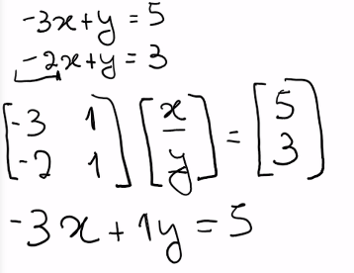 -3x+y = 5
-2x+y = 3
[-3 1] [x] = [5]
[-2 1] [y] [3]
-3x+1y=5